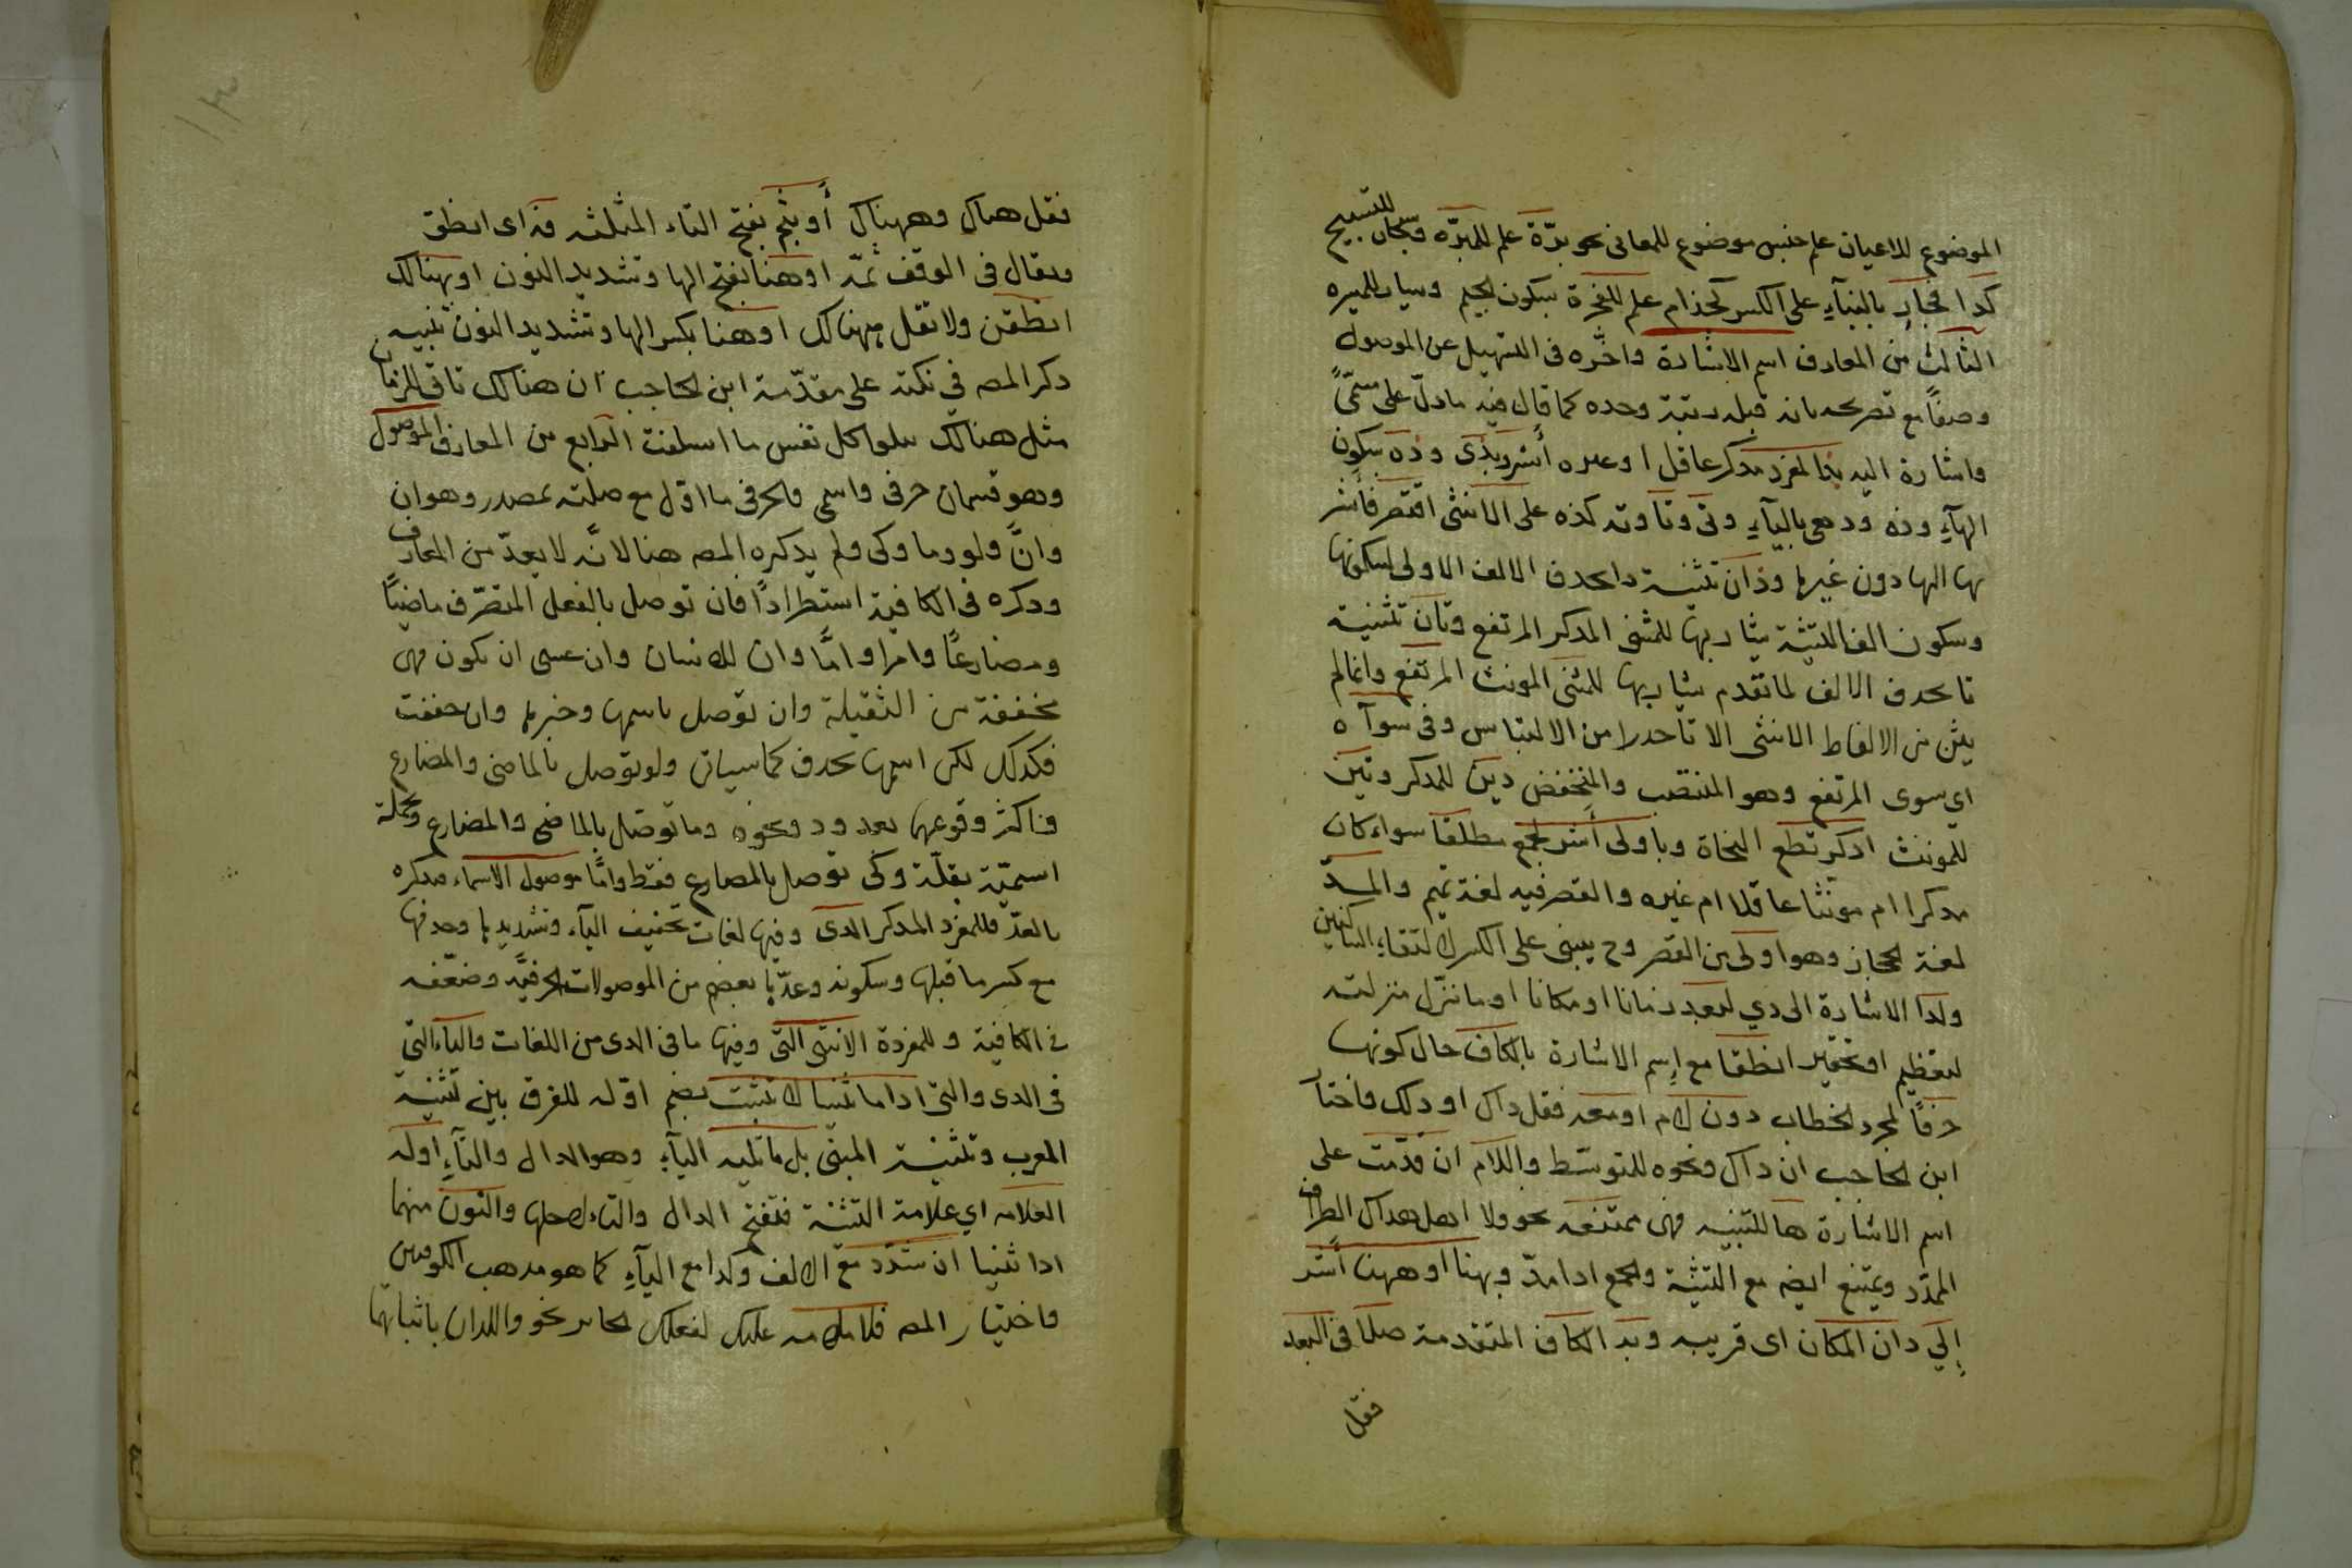 الموضوع للاعيان علم جنس موضوع للمعانى نحو برّة علم للمبرّه وسبحان للتسبيح
كدا فجار بالبنآء على الكسر كحذام علم للفجرة بسكون الجيم ويسار للميسره
الثالث من المعارف اسم الاشارة واخّره فى التسهيل عن الموصول
وصفًا مع تصريحه بانه قبله رتبة وحده كما قال فيه ما دلّ على مسمّىً
واشارة اليه بذا لمفرد مدكر عاقل او غيره أشر وبذى وذه بسكون
الهآء وذه ودهى باليآء وتى وتا وته كذه على الانثى اقتصر فأشر
بها اليها دون غيرها وذان تثنية دا بحدف الالف الاولى لسكونها
وسكون الف التثنية يشار بها للمثنى المدكر المرتفع وتان تثنية
تا بحدف الالف لما تقدم يشار بها للمثنى المونث المرتفع وانما لم
يثن من الالفاط الانثى الا تا حدرا من الالتباس وفى سوآه
اى سوى المرتفع وهو المنتصب والمنخفض دين للمدكر وتين
للمونث ادكر تطع النحاة وباولى أشر لجمع مطلقا سواء كان
مدكرا ام مونثا عاقلا ام غيره والقصر فيه لغة تميم والمدّ
لغة الحجاز وهو اولى من القصر وح يبنى على الكسر لالتقاء الساكنين
ولدا الاشارة الى دي البعد زمانا او مكانا او ما نزّل منزلته
لتعظيم او تحقير انطقا مع إسم الاشارة بالكاف حال كونها
حرفًا لمجرد الخطاب دون لام او معه فقل داك او دلك واختار
ابن الحاجب ان داك ونحوه للتوسّط واللام ان قدّمت على
اسم الاشارة ها للتنبيه فهى ممتنعه نحو ولا اهل هداك الطراف
الممدّد ويمتنع ايضه مع التثنية والجمع ادا مدّ وبهنا او ههنا أشر
إلي دان المكان اى قريبه وبه الكاف المتقدمة صلا فى البعد
فقل
فقل هناك وههناك أو بثم بفتح الثاء المثلثه فه اى انطق
ويقال فى الوقف ثمّه او هنا بفتح الها وتشديد النون او بهنالك
انطقن ولا تقل ههنالك او هنا بكسر الها وتشديد النون تنبيه
دكر المصه في نكته على مقدّمة ابن الحاجب ان هنالك تاتى للزمان
مثل هنالك تبلوا كل نفس ما اسلفت الرابع من المعارف الموصول
وهو قسمان حرفى واسمى فالحرفى ما اوّل مع صلته بمصدر وهو ان
وانّ ولو وما وكى ولم يدكره المصه هنا لانّه لا يعدّ من المعارف
ودكره فى الكافية استطرادًا فان توصل بالفعل المتصرّف ماضيًا
ومضارعًا وامرا وامّا وان للانسان وان عسى ان يكون فهى
مخففة من الثقيلة وان توصل باسمها وخبرها وان خففت
فكدلك لكن اسمها يحدف كما سياتى ولو توصل بالماضى والمضارع
واكثر وقوعها بعد ود ونحوه وما توصل بالماضى والمضارع وبجملة
اسميّة بقلّة وكى توصل بالمضارع فقط وامّا موصول الاسماء فيدكره
بالعدّ فللمفرد المدكر الدى وفيها لغات تخفيف اليآء وتشديدها وحدفها
مع كسر ما قبلها وسكونه وعدّها بعضهم من الموصولات الحرفيّه وضعّفه
في الكافية وللمفردة الانثى التى وفيها ما فى الدى من اللغات واليآء التي
فى الدى والتى ادا ما ثنيا لا تثبت بضم اوّله للفرق بين تثنية
المعرب وتثنية المبنى بل ما تليه اليآء وهو الدال والتآء اوله
العلامه اي علامة التثنية فتفتح الدال والتاء لاجلها والنون منهما
ادا ثنيا ان تشدّد مع الالف وكدا مع اليآء كما هو مدهب الكوفيين
واختيار المصه فلا ملامه عليك لفعلك الجائز نحو واللدان ياتيانها